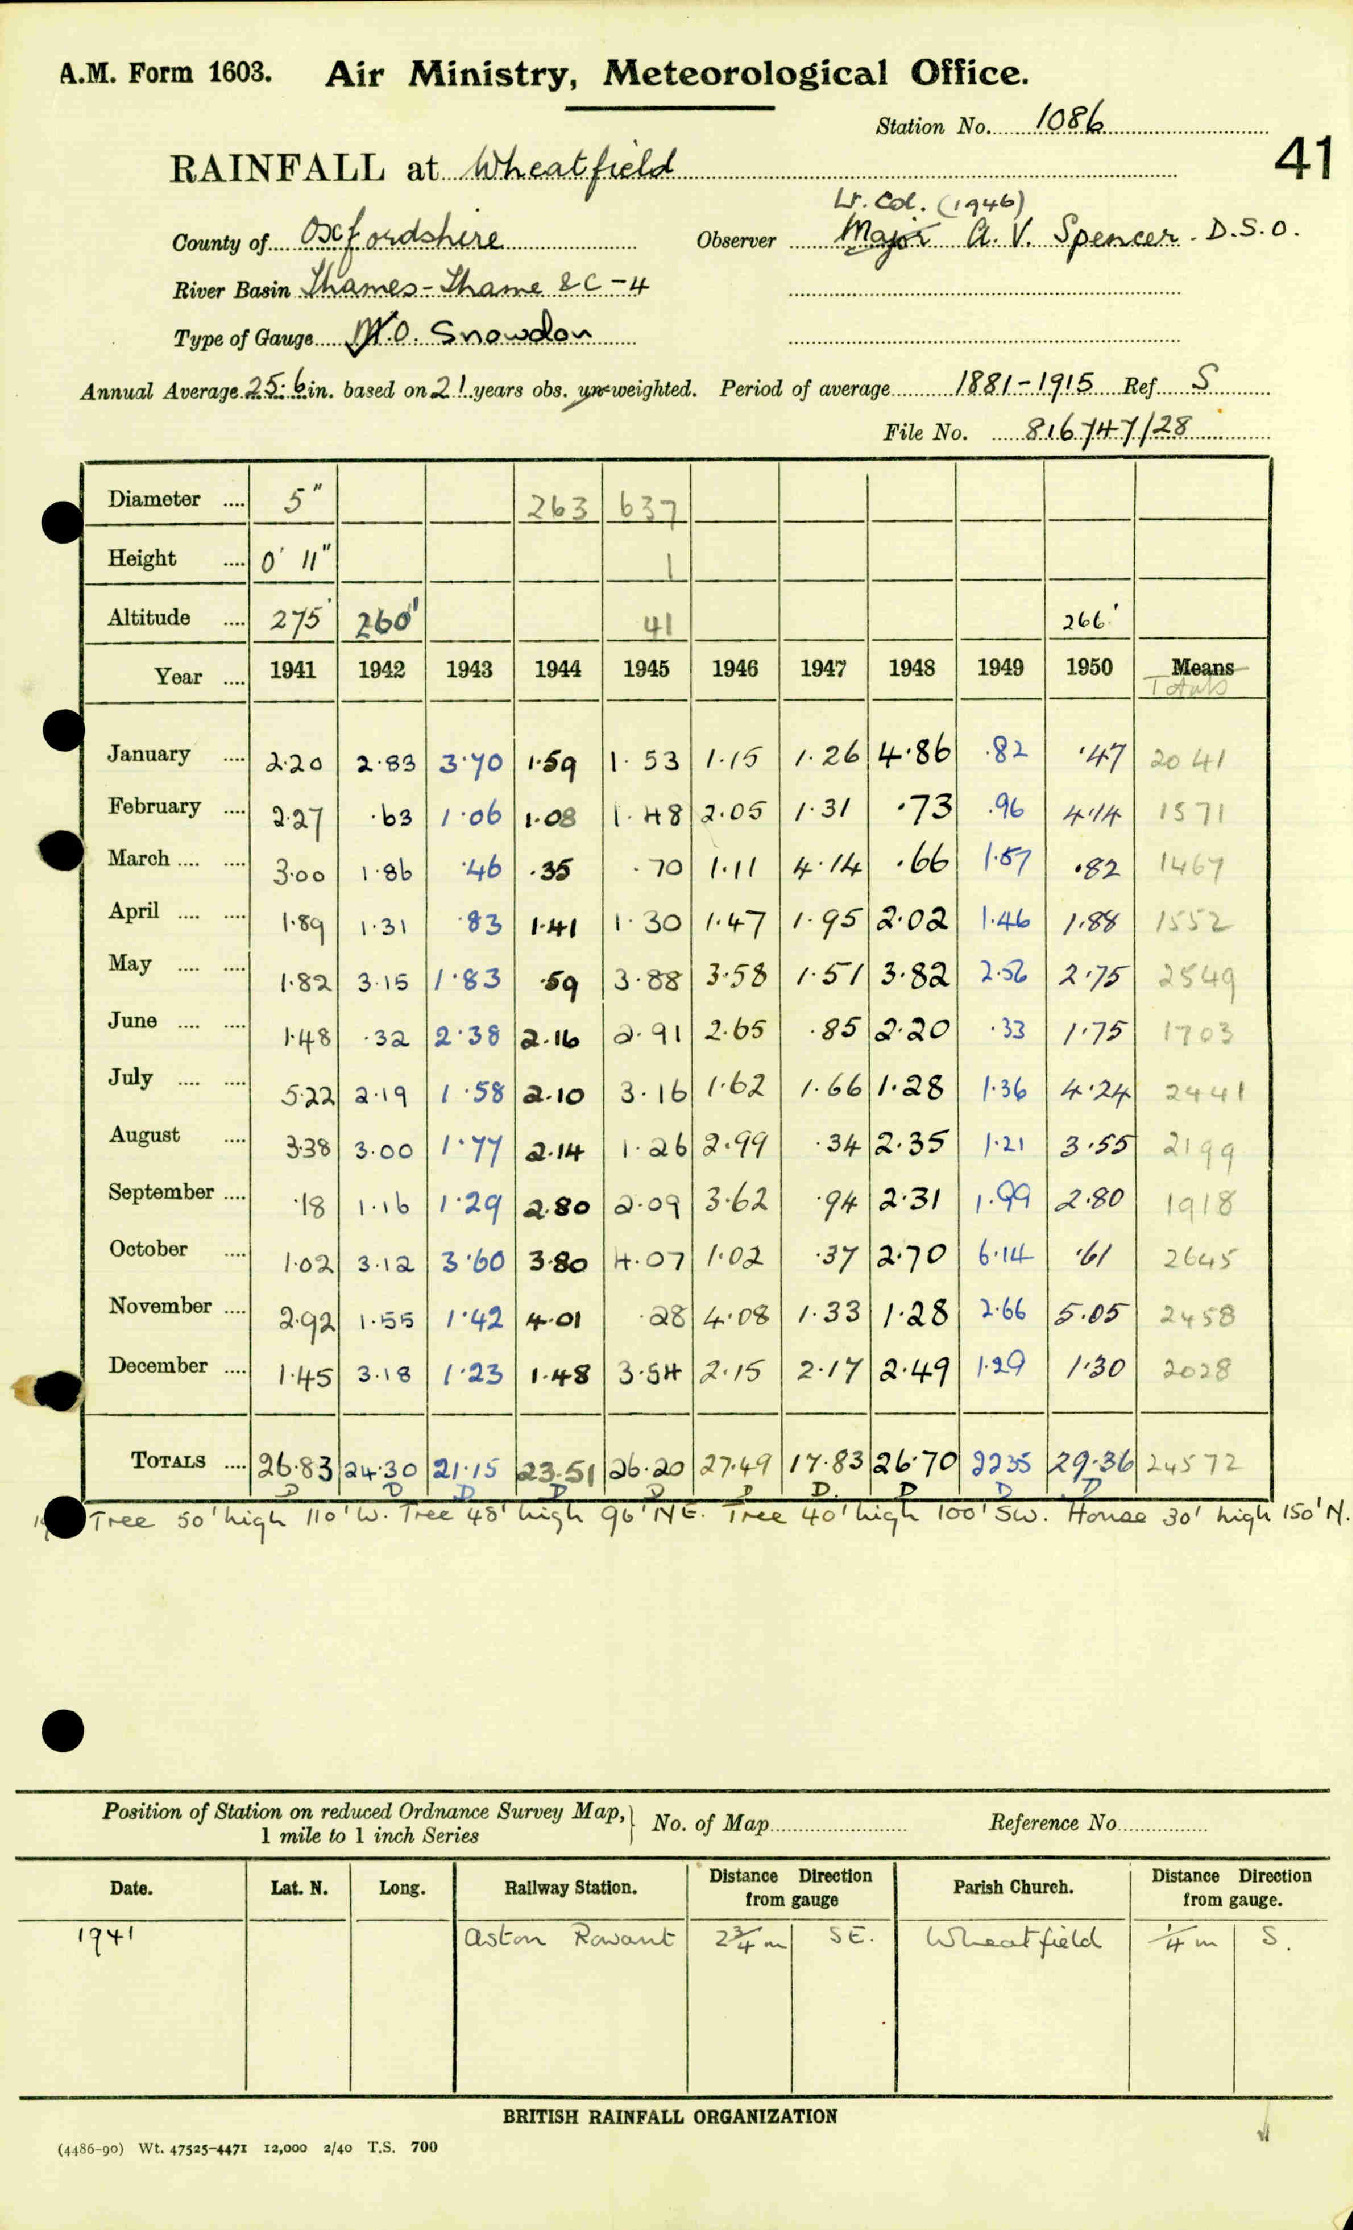 A.M. Form 1603. Air Ministry, Meteorological Office.
Station No. 1086
41
RAINFALL at Wheatfield
Lt. Col. (1946)
County of Oxfordshire Observer Major A. V. Spencer. D.S.O.
River Basin Thames - Thame &C - 4
Type of Gauge M.O. Snowdon
Annual Average 25.6 in. based on 21 years obs. un-weighted. Period of average 1881-1915 Ref. S
File No. 816747/28
Diameter .... 5" 263 637
Height .... 0' 11" 1
Altitude .... 275' 260' 41 266'
Year .... 1941 1942 1943 1944 1945 1946 1947 1948 1949 1950 Means
Totals
January .... 2.20 2.83 3.70 1.59 1.53 1.15 1.26 4.86 .82 .47 2041
February .... 2.27 .63 1.06 1.08 1.48 2.05 1.31 .73 .96 4.14 1571
March .... .... 3.00 1.86 .46 .35 .70 1.11 4.14 .66 1.57 .82 1467
April .... .... 1.89 1.31 .83 1.41 1.30 1.47 1.95 2.02 1.46 1.88 1552
May .... .... 1.82 3.15 1.83 .59 3.88 3.58 1.51 3.82 2.56 2.75 2549
June .... .... 1.48 .32 2.38 2.16 2.91 2.65 .85 2.20 .33 1.75 1703
July .... .... 5.22 2.19 1.58 2.10 3.16 1.62 1.66 1.28 1.36 4.24 2441
August .... 3.38 3.00 1.77 2.14 1.26 2.99 .34 2.35 1.21 3.55 2199
September .... .18 1.16 1.29 2.80 2.09 3.62 .94 2.31 1.99 2.80 1918
October .... 1.02 3.12 3.60 3.80 4.07 1.02 .37 2.70 6.14 .61 2645
November .... 2.92 1.55 1.42 4.01 .28 4.08 1.33 1.28 2.66 5.05 2458
December .... 1.45 3.18 1.23 1.48 3.54 2.15 2.17 2.49 1.29 1.30 2028
TOTALS .... 26.83 24.30 21.15 23.51 26.20 27.49 17.83 26.70 2235 29.36 24572
D D D D D D D. D D D
Tree 50' high 110' W. Tree 48' high 96' NE. Tree 40' high 100' SW. House 30' high 150' N.
Position of Station on reduced Ordnance Survey Map, 1 mile to 1 inch Series No. of Map Reference No.
Date. Lat. N. Long. Railway Station. Distance Direction from gauge Parish Church. Distance Direction from gauge.
1941 Aston Rowant 2 3/4 m SE. Wheatfield 1/4 m S.
BRITISH RAINFALL ORGANIZATION
(4486-90) Wt. 47525-4471 12,000 2/40 T.S. 700